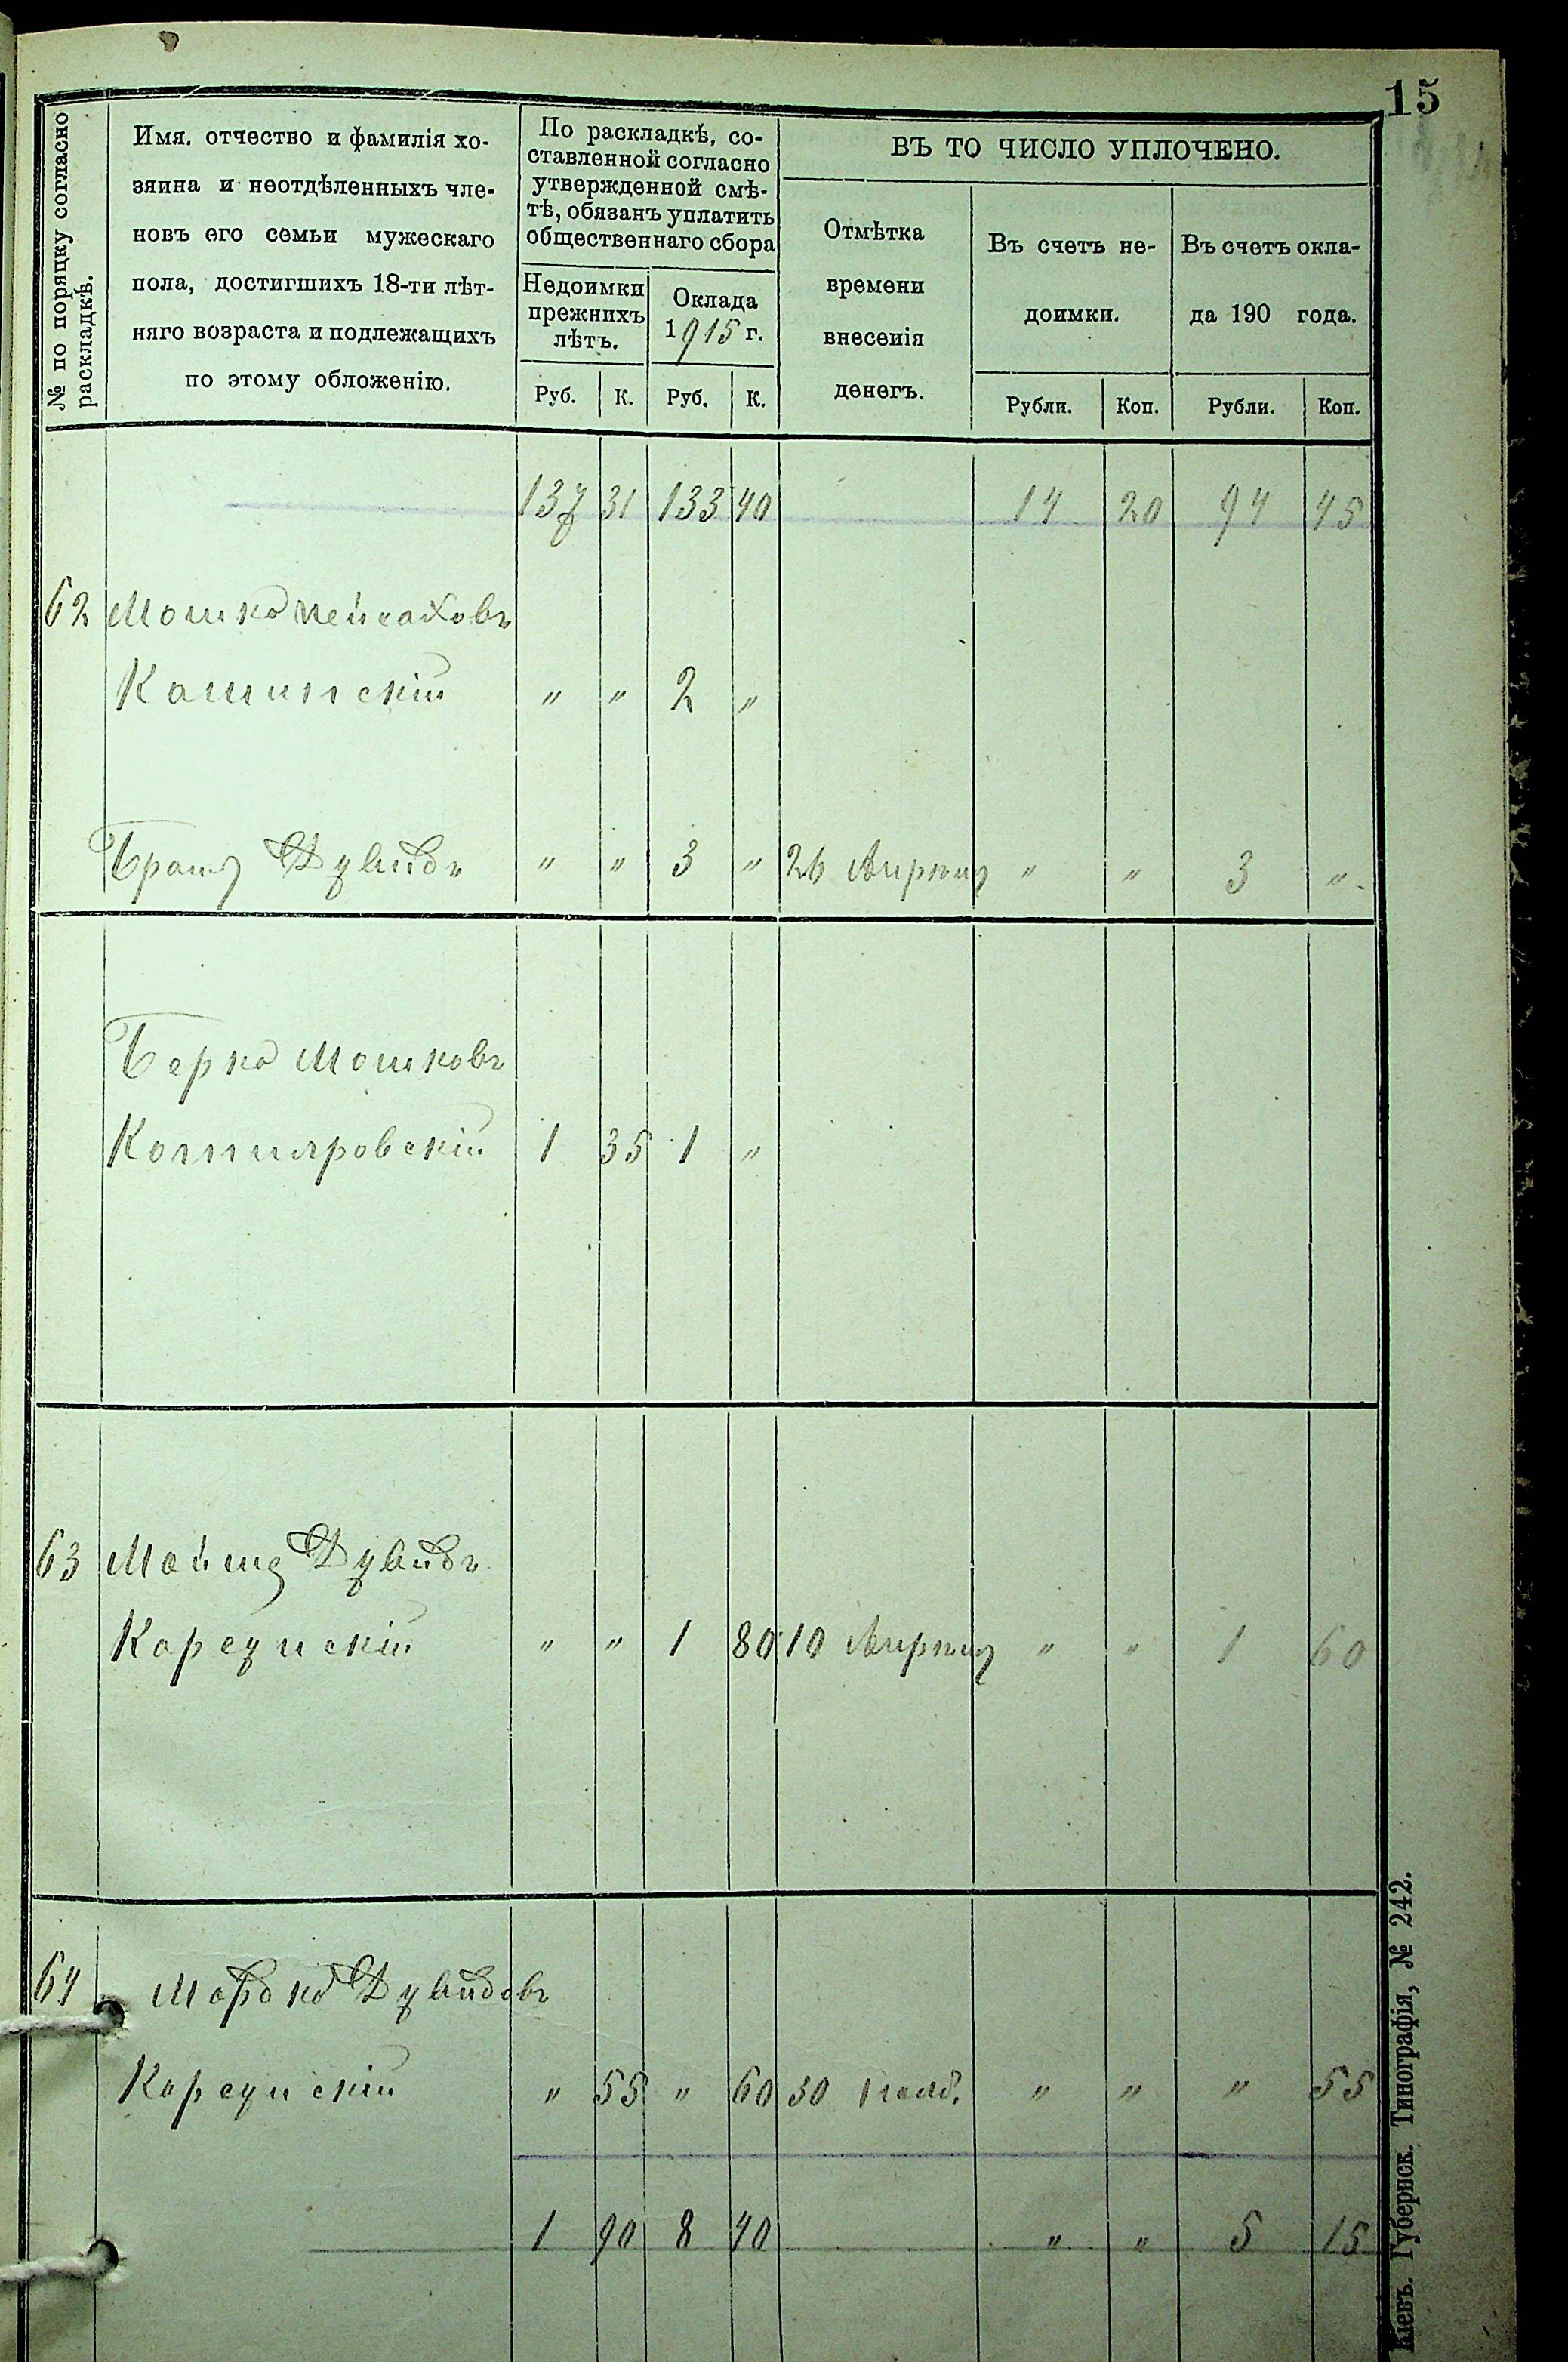 15
№ по поряцку согласно раскладкѣ.
Имя. отчество и фамилія хо-
зяина и неотдѣленныхъ чле-
новъ его семьи мужескаго
пола, достигшихъ 18-ти лѣт-
няго возраста и подлежащихъ
по этому обложенію.
По раскладкѣ, со-
ставленной согласно
утвержденной смѣ-
тѣ, обязанъ уплатить
общественнаго сбора
Недоимки
прежнихъ
лѣтъ.
Оклада
1915 г.
Руб. К. Руб. К.
ВЪ ТО ЧИСЛО УПЛОЧЕНО.
Отмѣтка
времени
внесенія
денегъ.
Въ счетъ не-
доимки.
Въ счетъ окла-
да 190 года.
Рубли. Коп. Рубли. Коп.
137 31 133 40 14 20 94 45
62 Мошко Пейсаховъ
Кашинскій " " 2 "
Братъ Дувидъ " " 3 " 26 Апрѣля " " 3 "
Берко Мошковъ
Котляровскій 1 35 1 "
63 Мойше Дувидъ
Корсунскій " " 1 80 10 Апрѣля " " 1 60
64 Мордко Дувидовъ
Корсунскій " 55 " 60 30 " " " 55
1 90 8 40 " " 5 15
Кіевъ. Губернск. Типографія, № 242.